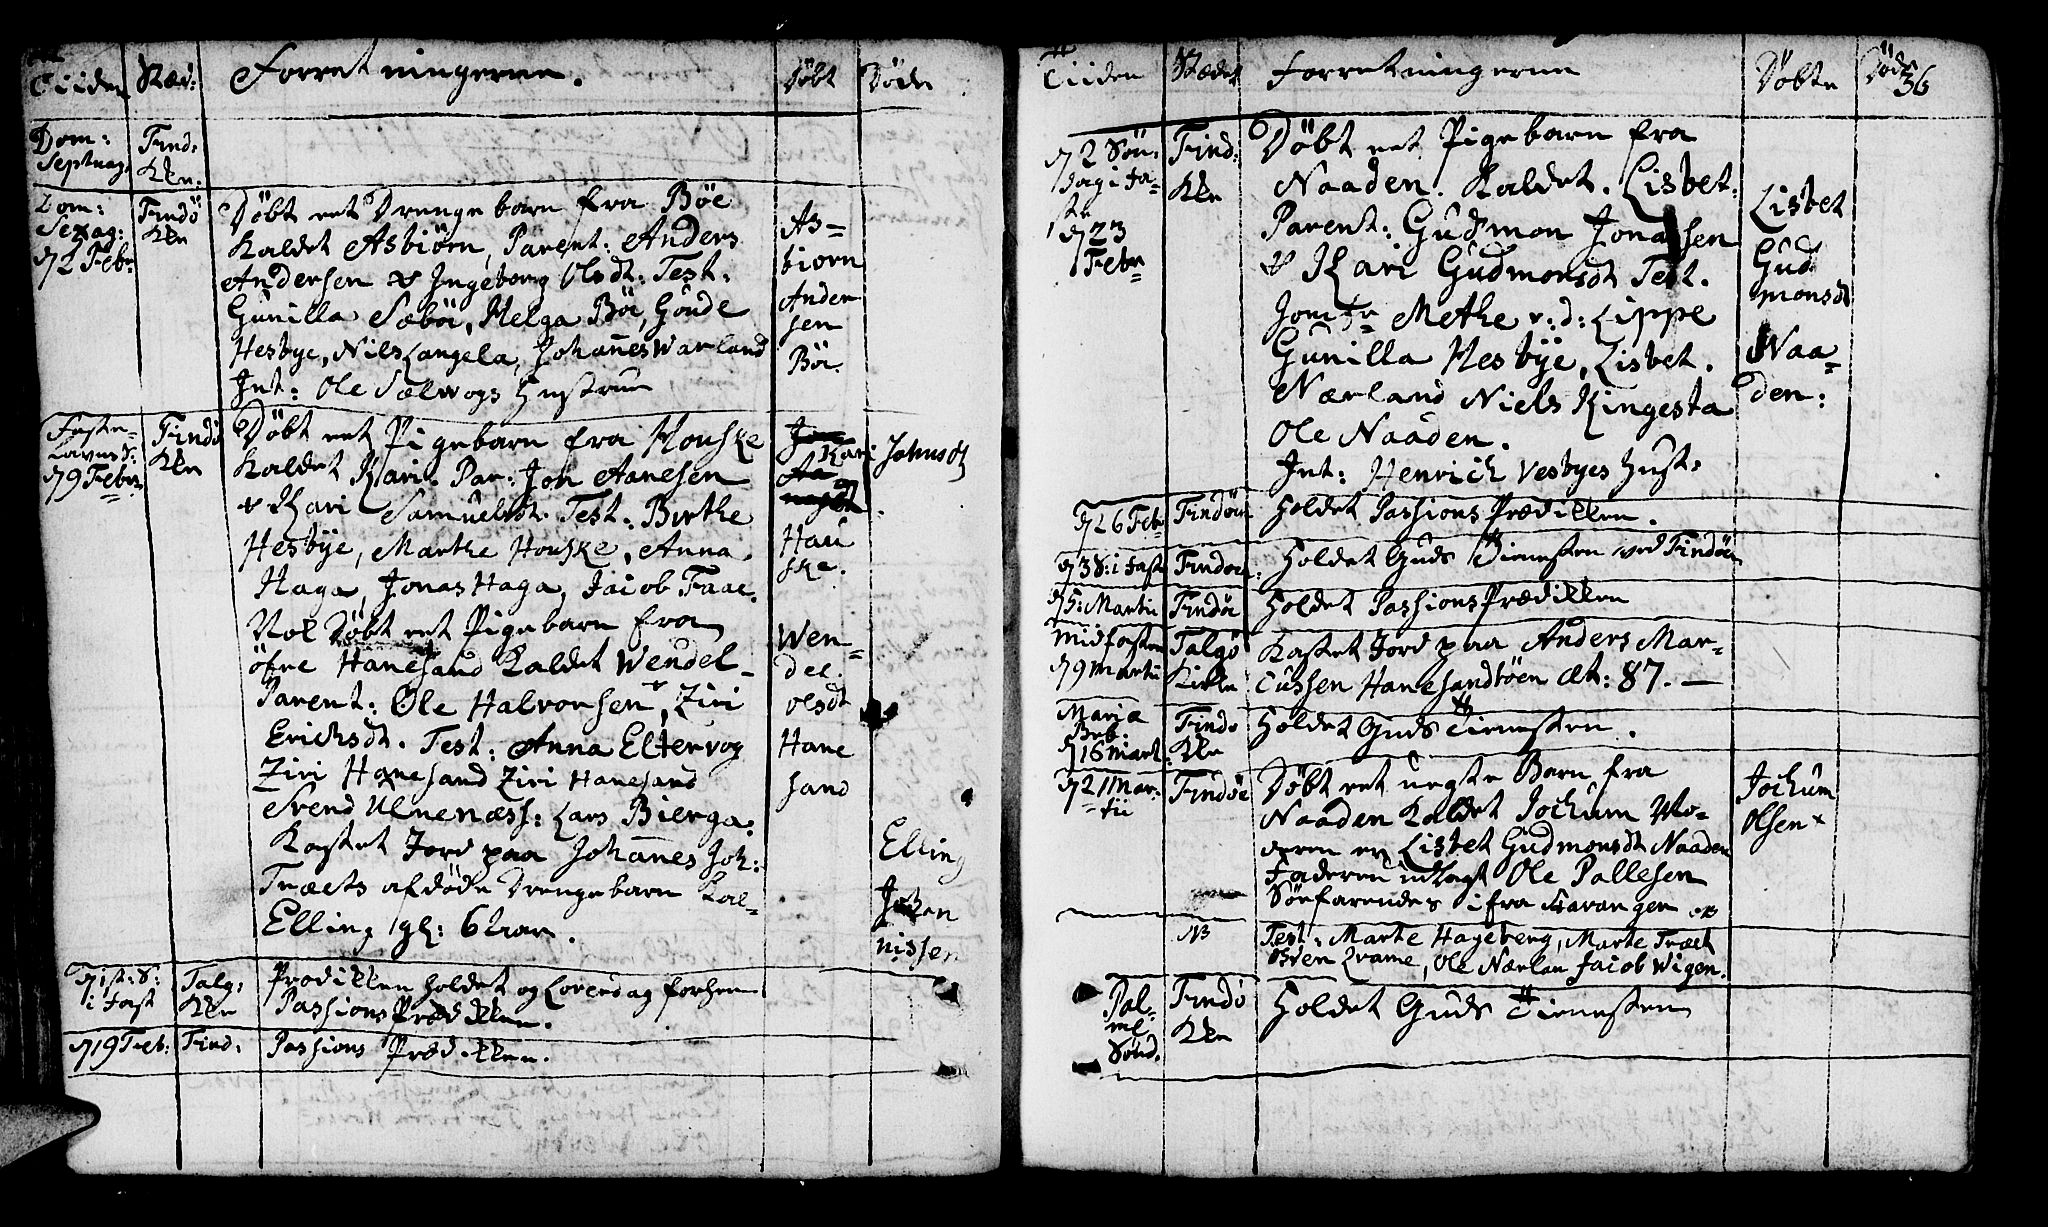 Tiiden Stæd: Forretningerne. Döbt Döde
Dom: Septuag. Find: Kke:
Dom: Sexag: d 2 Febr Findö Kke
Döbt eet Drengebarn fra Böe
kaldet Asbiörn, Parent: Anders
Andersen & Ingeborg Olsdt: Test:
Gunilla Sæbö, Helga Böe, Gönde
Hesbye, Niels Langela, Johannes Warland
Int: Ole Sælwogs Hustrue
As=
biorn
Ander
sen
Böe.
Faste=
Lavns S:
d 9 Febr
Findö
Kke
Döbt eet Pigebarn fra Houske
kaldet Kari. Par: Jon Aanesen
& Kari Samuelsdt. Test: Birthe
Hesbÿe, Marthe Houske, Anna
Haga, Jonas Haga, Jacob Faae.
Kari Johnsdt
Hau
ske.
Nok Döbt eet Pigebarn fra
öfre Hanesand kaldet Wendel
Parent: Ole Halvorsen, & Ziri
Erichsdt. Test: Anna Eltervog
Ziri Hanesand Ziri Hanesand
Svend Ulnenæss: Lars Bierga:
Wen=
del.
Olsdt
Hane
sand
Kastet Jord paa Johannes Joh:
Træets afdöde Drengebarn kal=
Elling gl: 6 Aar.
Elling
Johan
nissen
d 1st: S:
i Fast
Talg:
Kke
Prædikken holdet og Löverdag forhen
Passions Prædikken.
d 19 Feb: Find: Passions Prædikken.
Tiiden Stædet Forretningerne Döbte Döde 36
d 2 Sön:
dag i Fa=
ste
d 23
Febr
Find:
Kke
Döbt eet Pigebarn fra
Naaden. Kaldet. Lisbet:
Parent: Gudmon Jonassen
& Kari Gudmonsdt Test.
Jomfr Methe v: d: Lippe
Gunilla Hesbÿe, Lisbet.
Nærland Niels Ringesta
Ole Naaden.
Int: Henrich Vesbyes Hust:
Lisbet
Gud
monsdt
Naa=
den:
d 26 Feb Findöe Holdet Passions Prædikken.
d 3 S: i Fast Findöe: Holdet Guds Tienesten ved Findöe
d 5: Martii Findöe Holdet Passions Prædikken
Midfasten
d 9 Martii
Talgö
Kirke
Kastet Jord paa Anders Mar=
cussen Hanesandtöen æt: 87. —
Maria
Beb.
d 16 Mart
Findö
Kke
Holdet Guds Tienesten.
d 21 Mar=
tii
Findöe
Döbt eet uegte Barn fra
Naaden kaldet Jochum Mo=
deren er Lisbet Gudmonsdt Naaden
Faderen udlagt Ole Pallesen
Söefarendes ifra Stavanger
Jochum
Olsen
NB
Test: Marte Hageberg, Marte Træet
Ole Nærlan Jacob Wigen.
Pal=
me
Sönd.
Findö
Kke
Holdet Guds Tienesten